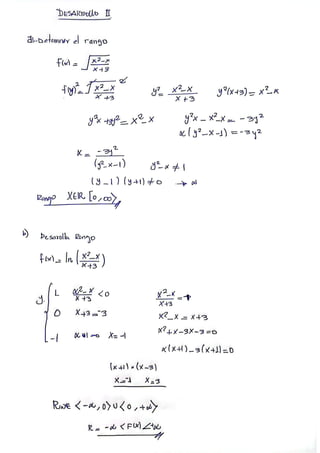 DESARROLLO II
a) Determinar el rango
f(x) = √(x²-x / x+3)
f(y)² = √(x²-x / x+3)² y² = x²-x / x+3 y²(x+3) = x²-x
y²x + 3y² = x²-x y²x - x²-x = -3y²
x(y²-x-1) = -3y²
x = -3y² / (y²-x-1) y²-x ≠ 1
(y-1)(y+1) ≠ 0
Rango XER [0,∞)
b) Desarrolla Rango
f(x) = ln(x²-x / x+3)
y { L x²-x / x+3 < 0 x²-x / x+3 = 1
0 x+3 = -3 x²-x = x+3
-1 x = -1 x²+x-3x-3=0
x(x+1)-3(x+1)=0
(x+1)·(x-3)
x=-1 x=3
<-∞,0> U <0,+∞>
R = -∞ < F(x) < +∞